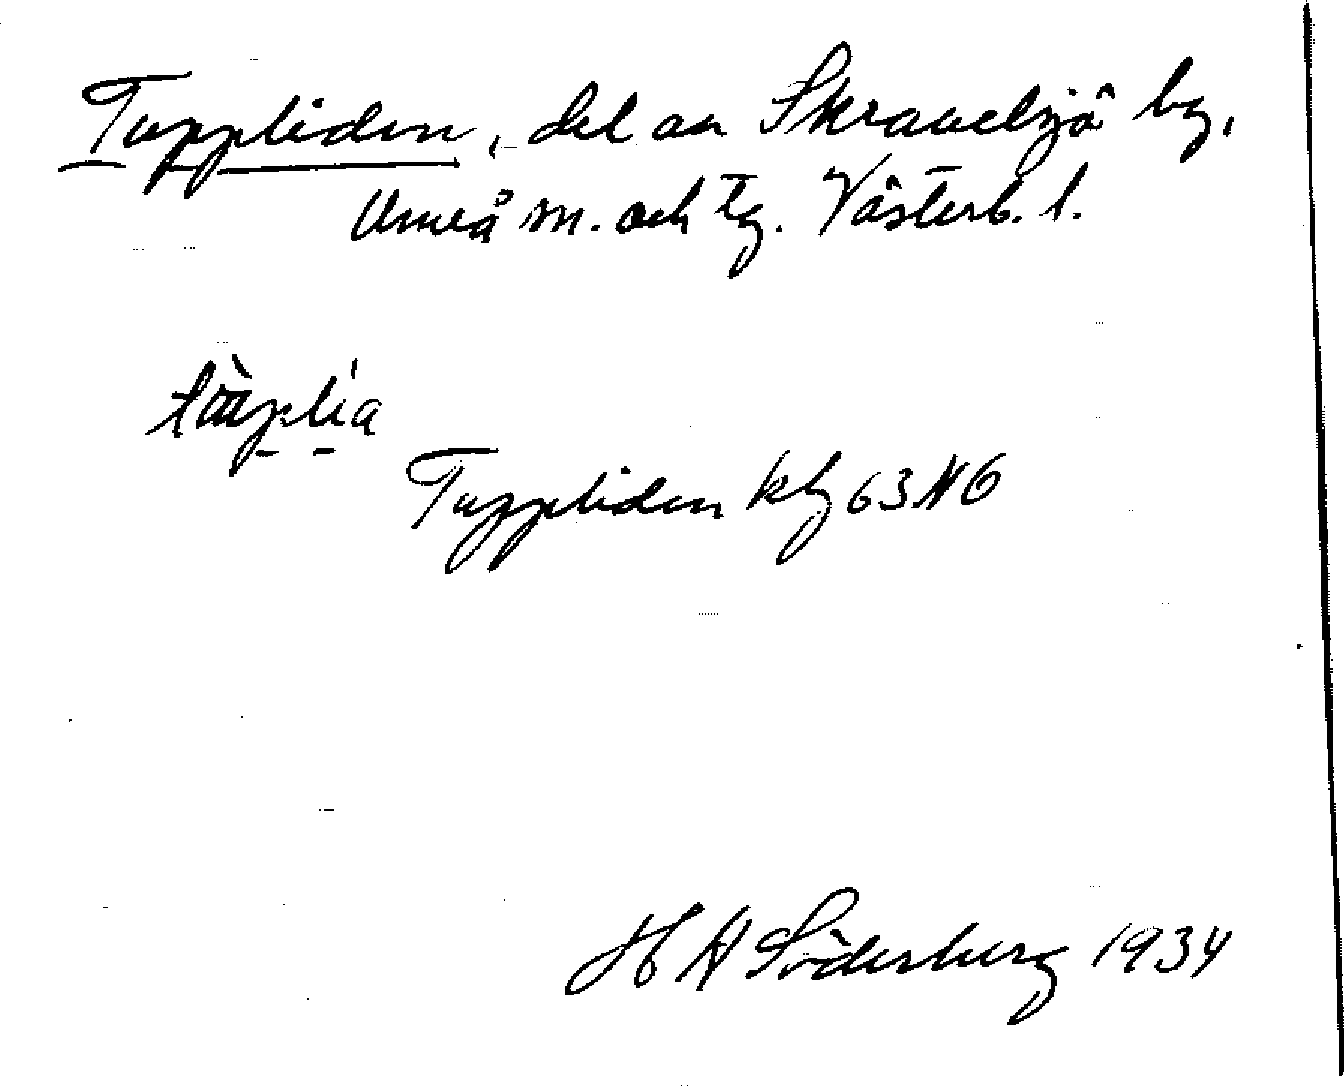 Tuppliden, del av Skravelsjö by,
Umeå m. och tg. Västerb. l.
Tuppliden kbl 63 N6
H A Söderberg 1934